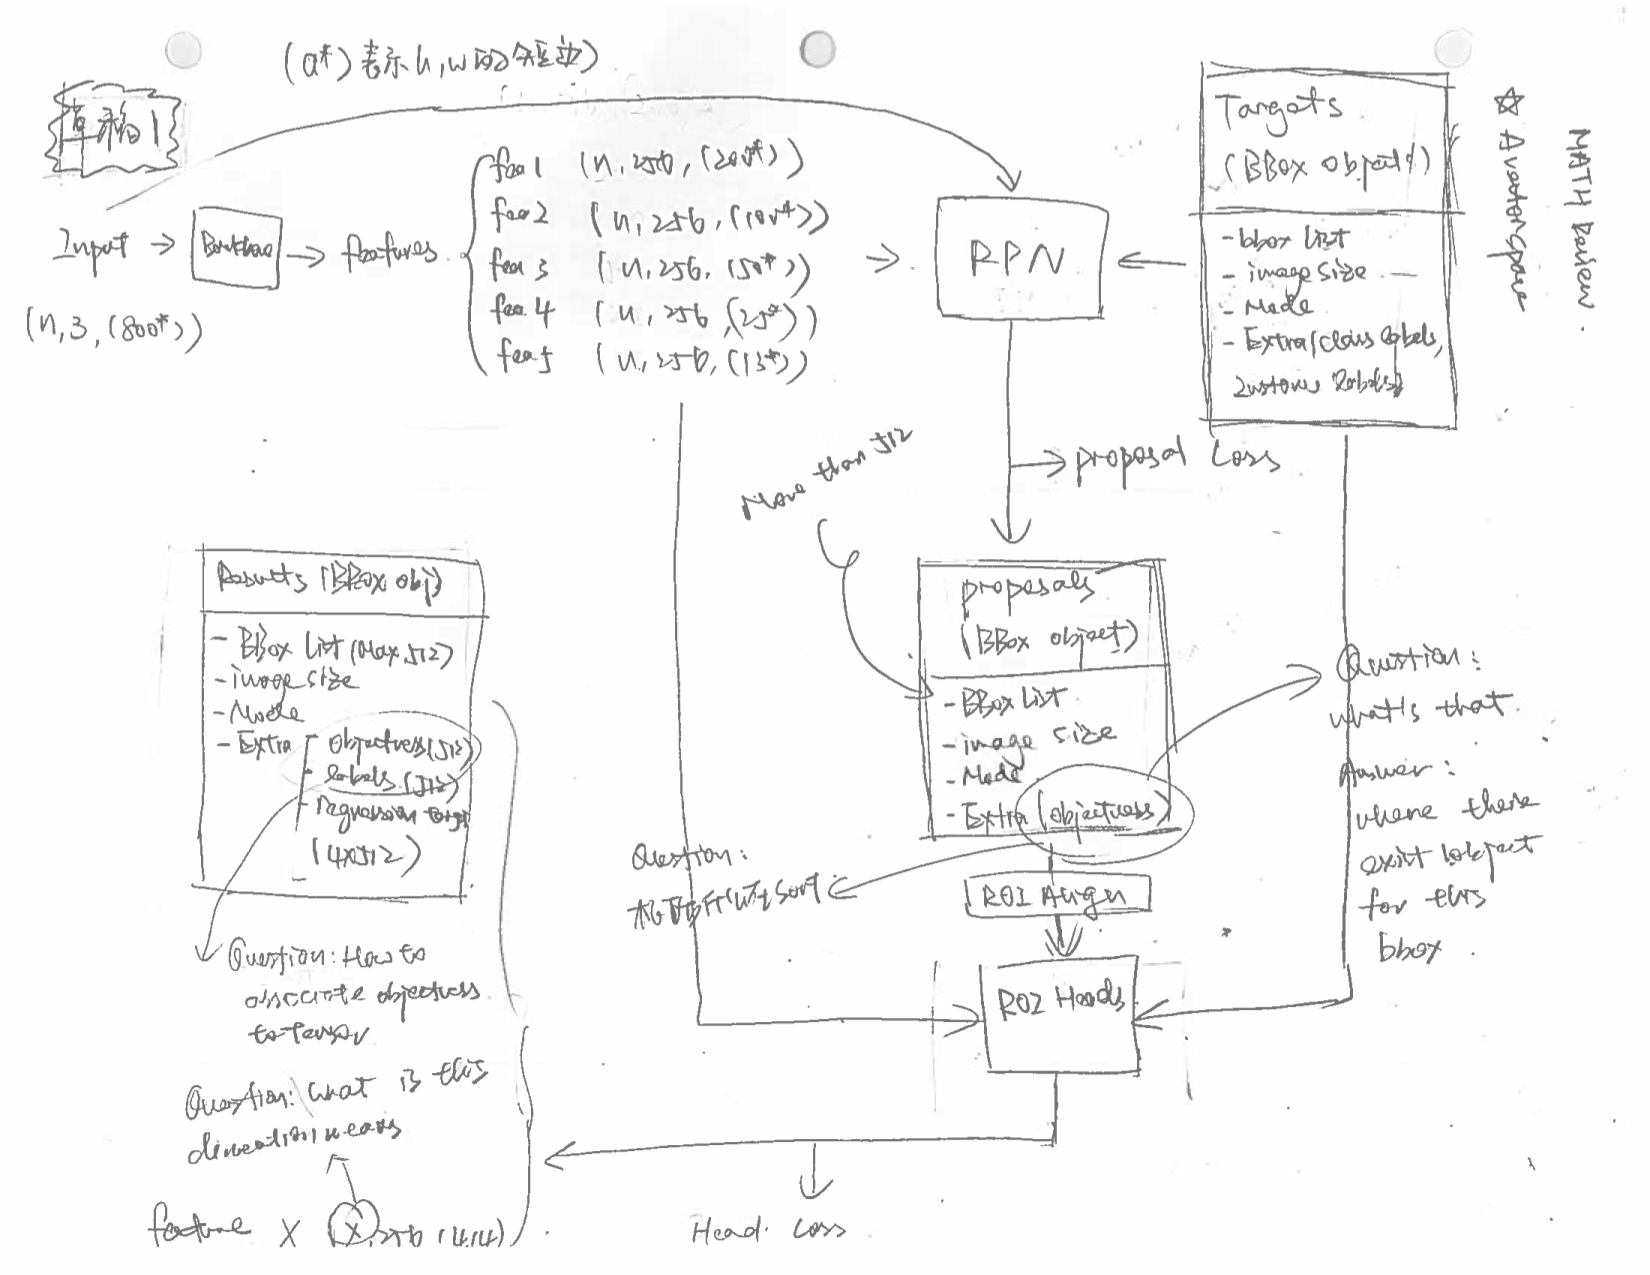 (a*) 表示 h, w 的短边)
草稿1
Input → Backbone → features
(n, 3, (800*))
fea1 (n, 256, (200*))
fea2 (n, 256, (100*))
fea3 (n, 256, (50*))
fea4 (n, 256, (25*))
fea5 (n, 256, (13*))
RPN
Targets
(BBox object)
- bbox list
- image size
- Mode
- Extra (class labels,
labels)
☆
MATH
proposal Loss
More than 512
proposals
(BBox object)
- BBox List
- image size
- Mode
- Extra (objectness)
Question:
what's that
Answer:
where there
exist object
for this
bbox
Question:
sort
ROI Align
ROI Heads
Results (BBox obj)
- BBox List (Max 512)
- image size
- Mode
- Extra - Objectness (512)
- labels (512)
- regression target
(4x512)
Question: How to
associate objectness
to tensor
Question: What is this
dimention means
feature X (X, 256, 14, 14)
Head Loss